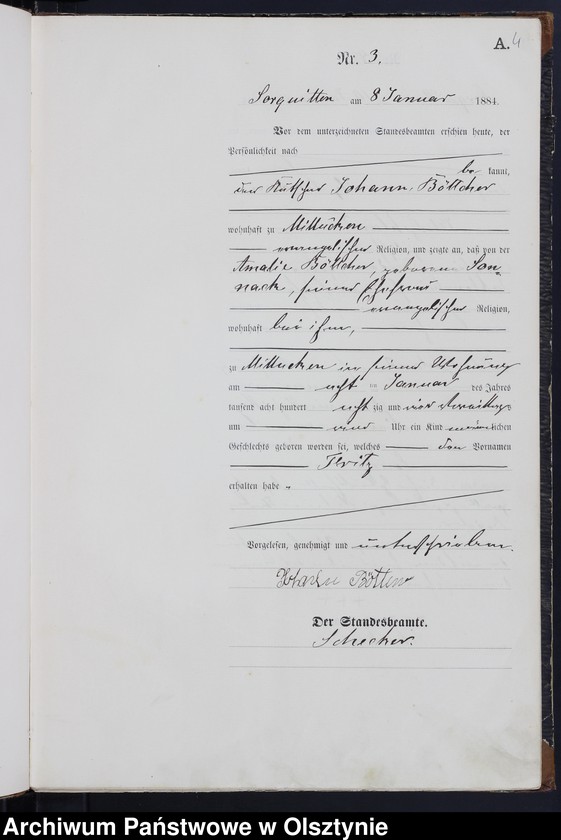 A. 4
Nr. 3.
Sorquitten am 8 Januar 1884.
Vor dem unterzeichneten Standesbeamten erschien heute, der
Persönlichkeit nach
be kannt,
der Kutscher Johann Böttcher
wohnhaft zu Millucken
evangelischer Religion, und zeigte an, daß von der
Amalie Böttcher, geborene San-
nack, seiner Ehefrau
evangelischer Religion,
wohnhaft bei ihm,
zu Millucken in seiner Wohnung
am acht ten Januar des Jahres
tausend acht hundert acht zig und vier Vormittags
um Uhr ein Kind männlichen
Geschlechts geboren worden sei, welches den Vornamen
Fritz
erhalten habe
Vorgelesen, genehmigt und unterschrieben.
Johann Böttcher
Der Standesbeamte.
Schecker.
Archiwum Państwowe w Olsztynie